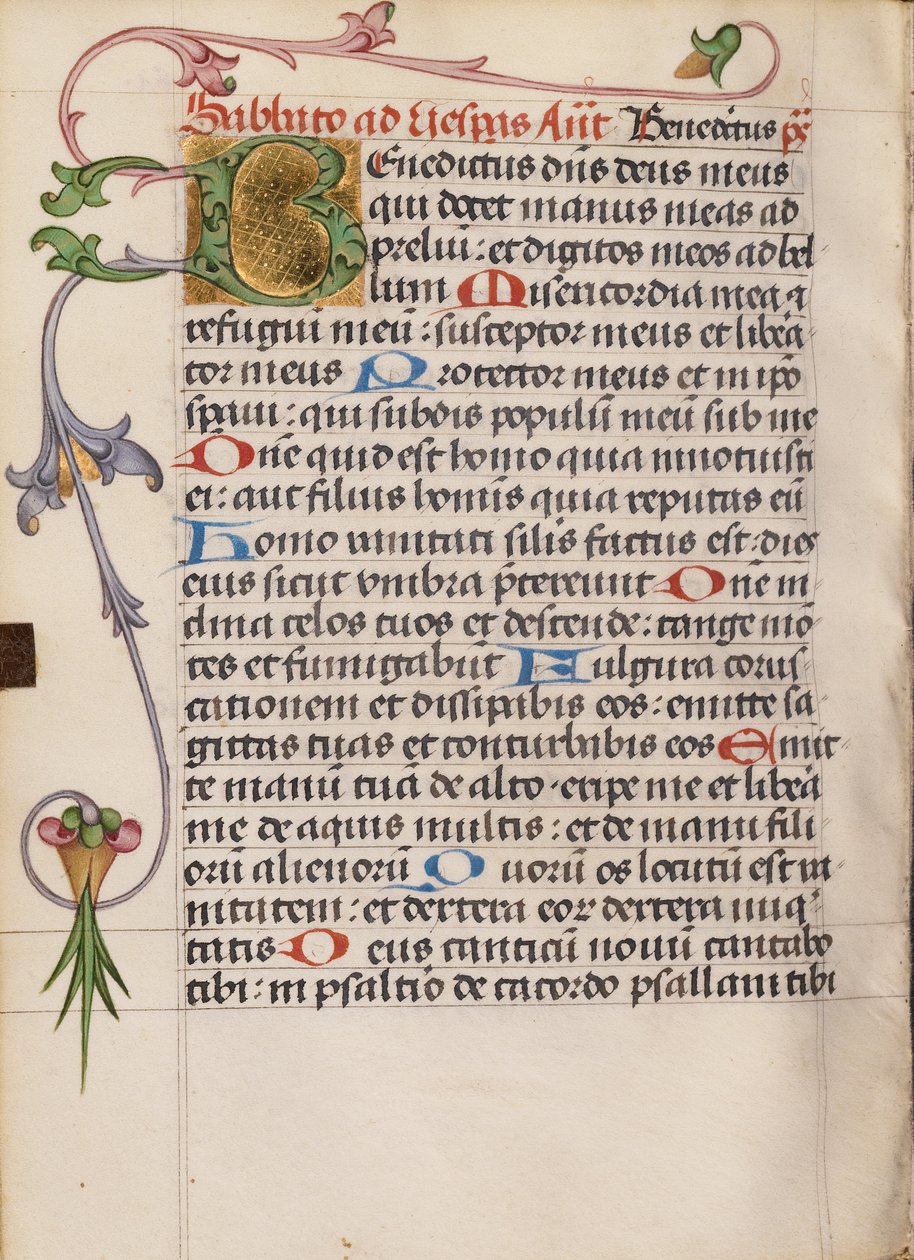 Sabbato ad Vespas Añt Benedictus ps
BEnedictus dñs deus meus
qui docet manus meas ad
preliū: et digitos meos ad bel
lum Misericordia mea ⁊
refugiū meū: susceptor meus et libera
tor meus Protector meus et in ipō
speraui: qui subdis populū meū sub me
Dñe quid est homo quia innotuisti
ei: aut filius hominis quia reputas eū
Homo vanitati silis factus est: dies
eius sicut vmbra p̄tereunt Dñe in
clina celos tuos et descende: tange mō
tes et fumigabūt Fulgura corus
cationem et dissipabis eos: emitte sa
gittas tuas et conturbabis eos Emit
te manū tuā de alto · eripe me et libera
me de aquis multis: et de manu fili
orū alienorū Quorū os locutū est va
nitatem: et dextera eoꝝ dextera iniq
tatis Deus canticū nouū cantabo
tibi: in psaltīo de cacordo psallam tibi